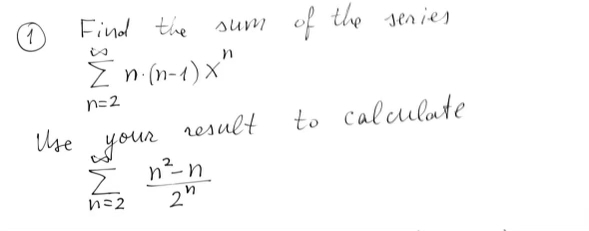 ① Find the sum of the series
∞
∑ n·(n-1) xⁿ
n=2
Use your result to calculate
∞
∑ n²-n / 2ⁿ
n=2